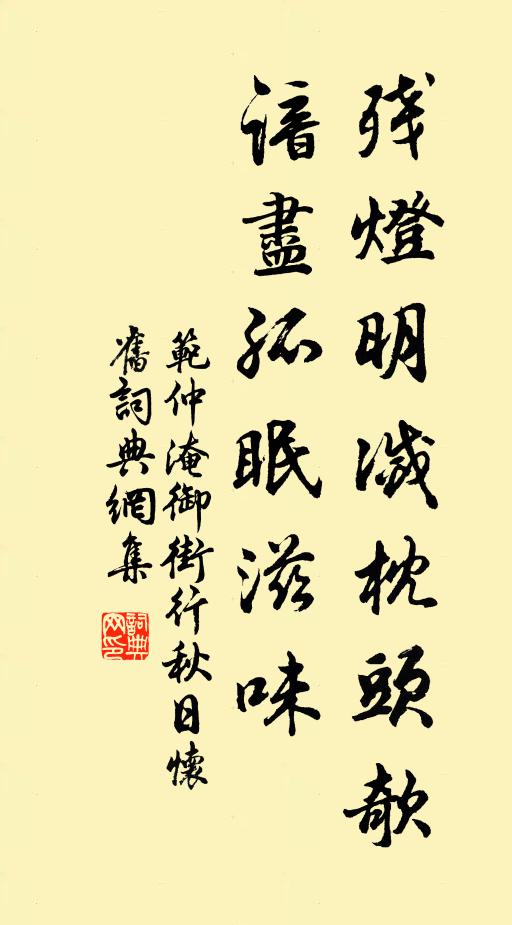 残燈明滅枕頭欹
諳盡孤眠滋味
範仲淹御街行秋日懷
舊詞典網集
詞典网印